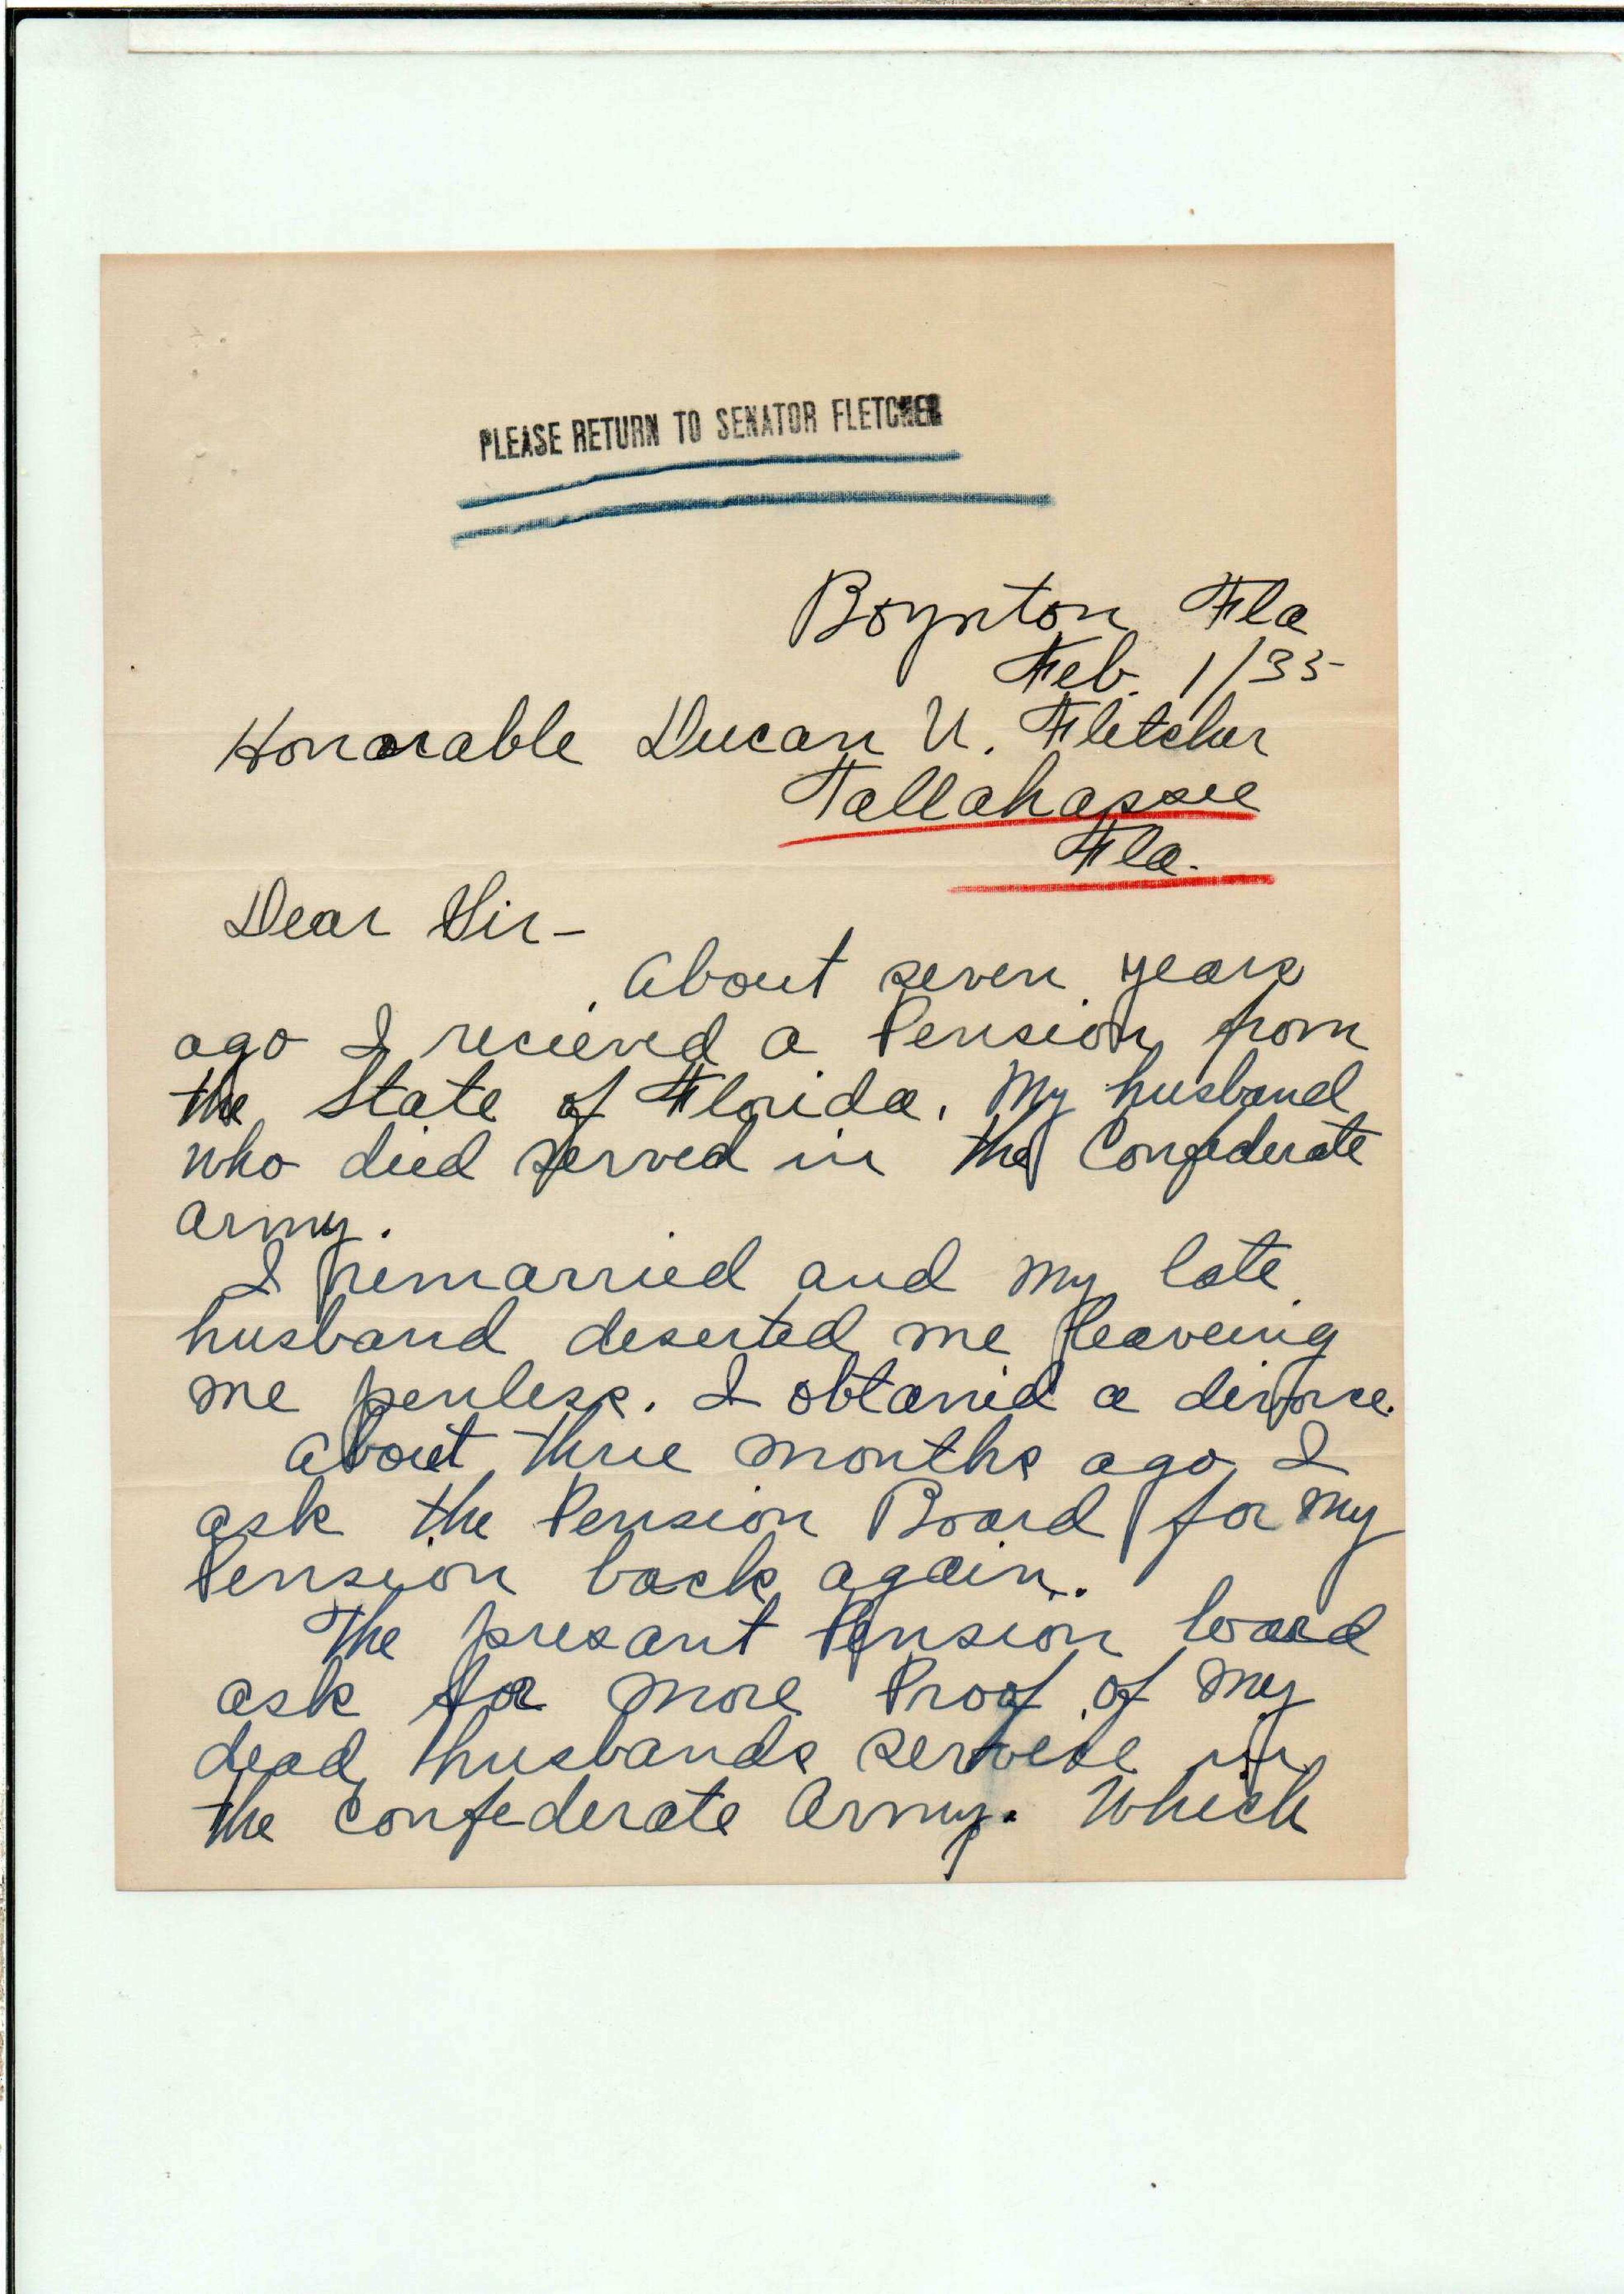 PLEASE RETURN TO SENATOR FLETCHER
Boynton Fla
Feb. 1/35
Honorable Ducan U. Fletcher
Tallahassee
Fla.
Dear Sir-
About seven years
ago I recieved a Pension from
the State of Florida. My husband
who died served in the Confederate
Army.
I remarried and my late
husband deserted me leaveing
me penless. I obtanid a divorce.
About three months ago I
ask the Pension Board for my
Pension back again.
The presant Pension board
ask for more Proof of my
dead husbands service in
the Confederate Army. Which